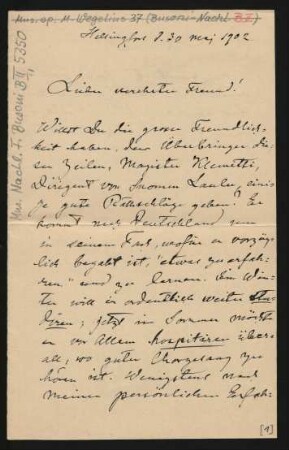 Mus. ep. M. Wegelius 37 (Busoni-Nachl. B II)
Mus. Nachl. F. Busoni B II, 5350
Helsingfors d. 30 Maj 1902
Lieber verehrter Freund!
Willst Du die grosse Freundlich-
keit haben, dem Überbringer die-
ser Zeilen, Magister Klemetti,
Dirigent von Suomen Laulu, eini-
ge gute Rathschläge geben? Er
kommt nach Deutschland um
in seinem Fach, wofür er vorzüg-
lich begabt ist, "etwas zu erfah-
ren" und zu lernen. Im Win-
ter will er ordentlich weiter stu-
dieren; jetzt im Sommer möchte
er vor Allem hospitieren über-
all, wo guter Chorgesang zu
hören ist. Wenigstens nach
meinen persönlichen Erfah-
[1]